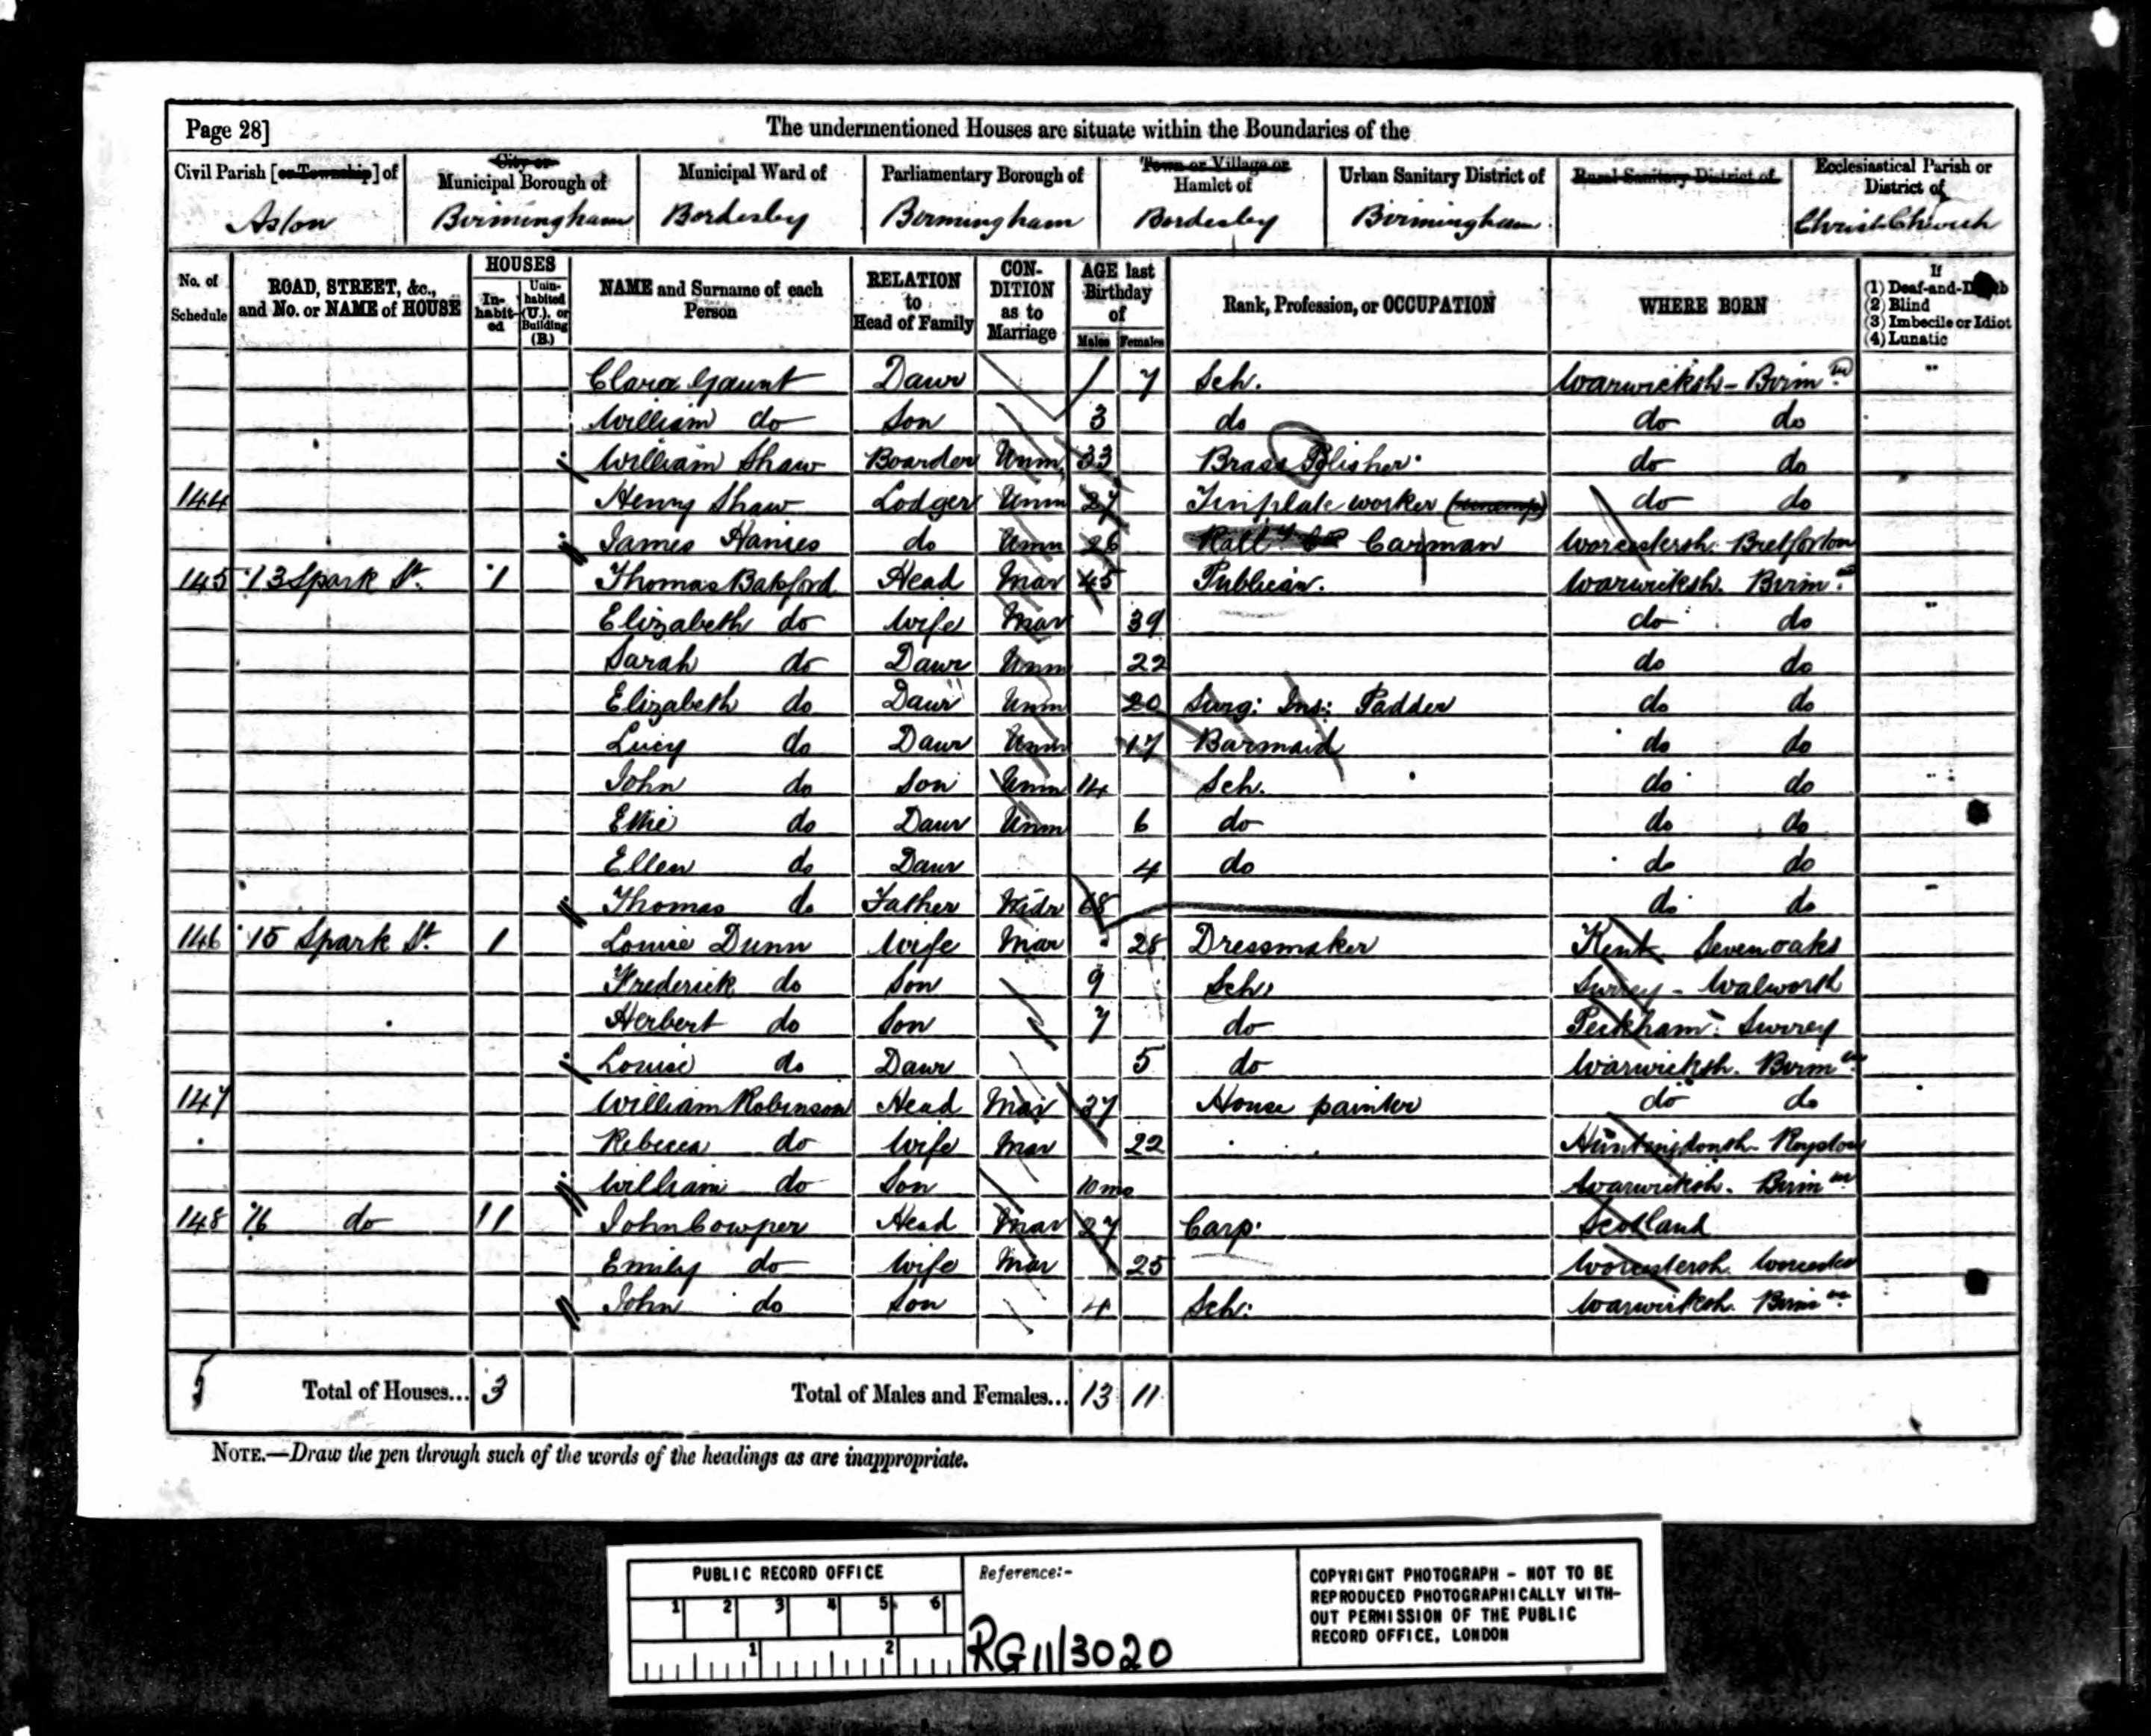 Page 28]
The undermentioned Houses are situate within the Boundaries of the
Civil Parish [or Township] of
City or Municipal Borough of
Municipal Ward of
Parliamentary Borough of
Town or Village or Hamlet of
Urban Sanitary District of
Rural Sanitary District of
Ecclesiastical Parish or District of
Aston Birmingham Bordesley Birmingham Bordesley Birmingham Christ Church
No. of Schedule
ROAD, STREET, &c., and No. or NAME of HOUSE
HOUSES
In-habit-ed
Unin-habited (U.), or Building (B.)
NAME and Surname of each Person
RELATION to Head of Family
CON-DITION as to Marriage
AGE last Birthday of
Males Females
Rank, Profession, or OCCUPATION
WHERE BORN
If
(1) Deaf-and-Dumb
(2) Blind
(3) Imbecile or Idiot
(4) Lunatic
Clara Gaunt Daur 7 Sch. Warwicksh - Birm m
William do Son 3 do do do
William Shaw Boarder Unm 33 Brass Polisher do do
144 Henry Shaw Lodger Unm 27 Tinplate worker (unemp) do do
James Hanies do Unm 26 Carman Worcestersh. Bretforton
145 13 Spark St. 1 Thomas Batsford Head Mar 45 Publican. Warwicksh. Birm m
Elizabeth do Wife Mar 39 do do
Sarah do Daur Unm 22 do do
Elizabeth do Daur Unm 20 Surg: Ins: Padder do do
Lucy do Daur Unm 17 Barmaid do do
John do Son Unm 14 Sch. do do
Effie do Daur Unm 6 do do do
Ellen do Daur 4 do do do
Thomas do Father Widr 68 do do
146 15 Spark St. 1 Louise Dunn Wife Mar 28 Dressmaker Kent Sevenoaks
Frederick do Son 9 Sch. Surrey - Walworth
Herbert do Son 7 do Peckham - Surrey
Louise do Daur 5 do Warwicksh. Birm m
147 William Robinson Head Mar 37 House painter do do
Rebecca do Wife Mar 22 Huntingdonsh - Royston
William do Son 10 mo Warwicksh. Birm m
148 16 do 1 John Cowper Head Mar 27 Carp. Scotland
Emily do Wife Mar 25 Worcestersh. Worcester
John do Son 4 Sch: Warwicksh. Birm m
Total of Houses... 3 Total of Males and Females... 13 11
NOTE.—Draw the pen through such of the words of the headings as are inappropriate.
PUBLIC RECORD OFFICE
1 2 3 4 5 6
1 2
Reference:-
RG 11/3020
COPYRIGHT PHOTOGRAPH - NOT TO BE
REPRODUCED PHOTOGRAPHICALLY WITH-
OUT PERMISSION OF THE PUBLIC
RECORD OFFICE, LONDON